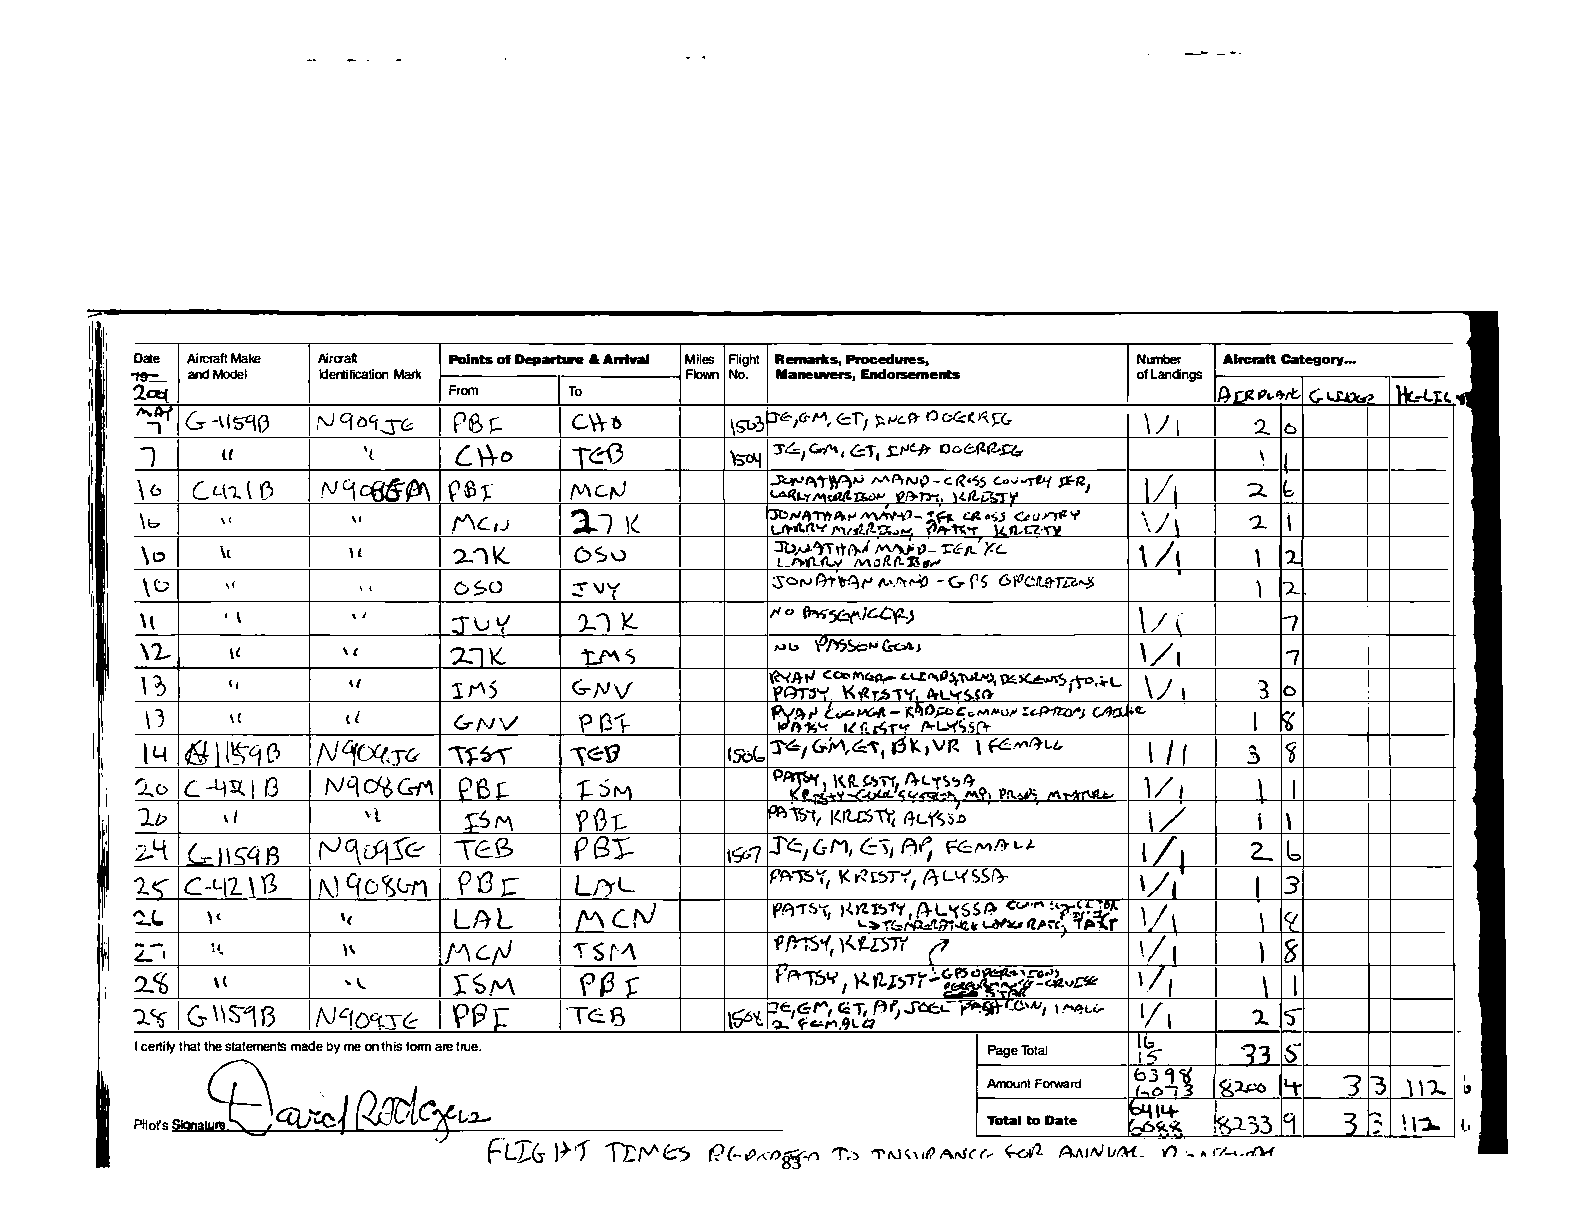 Date Aircraft Make and Model Aircraft Identification Mark Points of Departure & Arrival Miles Flown Flight No. Remarks, Procedures, Maneuvers, Endorsements Number of Landings Aircraft Category...
19 2001 From To AIRPLANE GLIDER HELIC
MAY 7 G-1159B N909JE PBI CHO 1503 JE, GM, ET, INCA DOERRIG 1/1 2 0
7 " " CHO TEB 1504 JE, GM, ET, INCA DOERRIG 1 1
10 C421B N908GM PBI MCN JONATHAN MANO-CROSS COUNTRY IFR, LARRY MORRISON, PATSY, KRISTY 1/1 2 6
10 " " MCN 27K JONATHAN MANO-IFR CROSS COUNTRY LARRY MORRISON, PATSY KRISTY 1/1 2 1
10 " " 27K OSU JONATHAN MANO-IFR XC LARRY MORRISON 1/1 1 2
10 " " OSU JVY JONATHAN MANO-GPS OPERATIONS 1 2
11 " " JVY 27K NO PASSENGERS 1/1 7
12 " " 27K IMS NO PASSENGERS 1/1 7
13 " " IMS GNV RYAN CLIMBS, TURNS, DESCENTS, PATSY, KRISTY, ALYSSA 1/1 3 0
13 " " GNV PBI RYAN RADIO COMMUNICATIONS PATSY KRISTY ALYSSA 1 8
14 G1159B N909JE TIST TEB 1506 JE, GM, ET, BK, VR 1 FEMALE 1/1 3 8
20 C-421B N908GM PBI ISM PATSY, KRISTY, ALYSSA KRISTY- MP, PROP, MIXTURE 1/1 1 1
20 " " ISM PBI PATSY, KRISTY, ALYSSA 1/ 1 1
24 G1159B N909JE TEB PBI 1507 JE, GM, ET, AP, FEMALE 1/1 2 6
25 C-421B N908GM PBI LAL PATSY, KRISTY, ALYSSA 1/1 1 3
26 " " LAL MCN PATSY, KRISTY, ALYSSA TEMPERATURE LAPSE RATE, 1/1 1 8
27 " " MCN ISM PATSY, KRISTY 1/1 1 8
28 " " ISM PBI PATSY, KRISTY-GPS OPERATIONS CRUISE 1/1 1 1
28 G1159B N909JE PBI TEB 1508 JE, GM, ET, AP, JOEL 1 MALE 2 FEMALE 1/1 2 5
I certify that the statements made by me on this form are true. Page Total 16 15 33 5
Amount Forward 6398 6073 8200 4 3 3 112 6
Pilot's Signature David Rodgers Total to Date 6414 6088 8233 9 3 3 112 6
FLIGHT TIMES REPORTED TO INSURANCE FOR ANNUAL
83